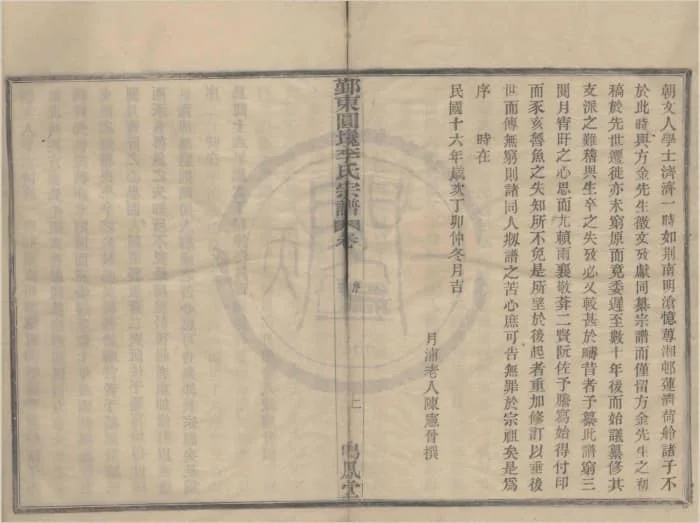 朝文人學士濟濟一時如荆南明滄憶蓴湘邨蓮濱荷舲諸子不
於此時與方金先生徵文攷獻同纂宗譜而僅留方金先生之初
稿於先世遷徙亦未窮原而竟委遲至數十年後而始議纂修其
支派之難稽與生卒之失攷必又較甚於疇昔者予纂此譜窮三
閱月宵旰之心思而尤賴雨襄敬莽二賢阮佐予謄寫始得付印
而豕亥魯魚之失知所不免是所望於後起者重加修訂以垂後
世而傳無窮則諸同人刱譜之苦心庶可告無罪於宗祖矣是爲
序 時在
民國十六年歲次丁卯仲冬月吉
月浦老人陳憲曾撰
鄞東圓墝李氏宗譜 卷首 序 二 鳴鳳堂